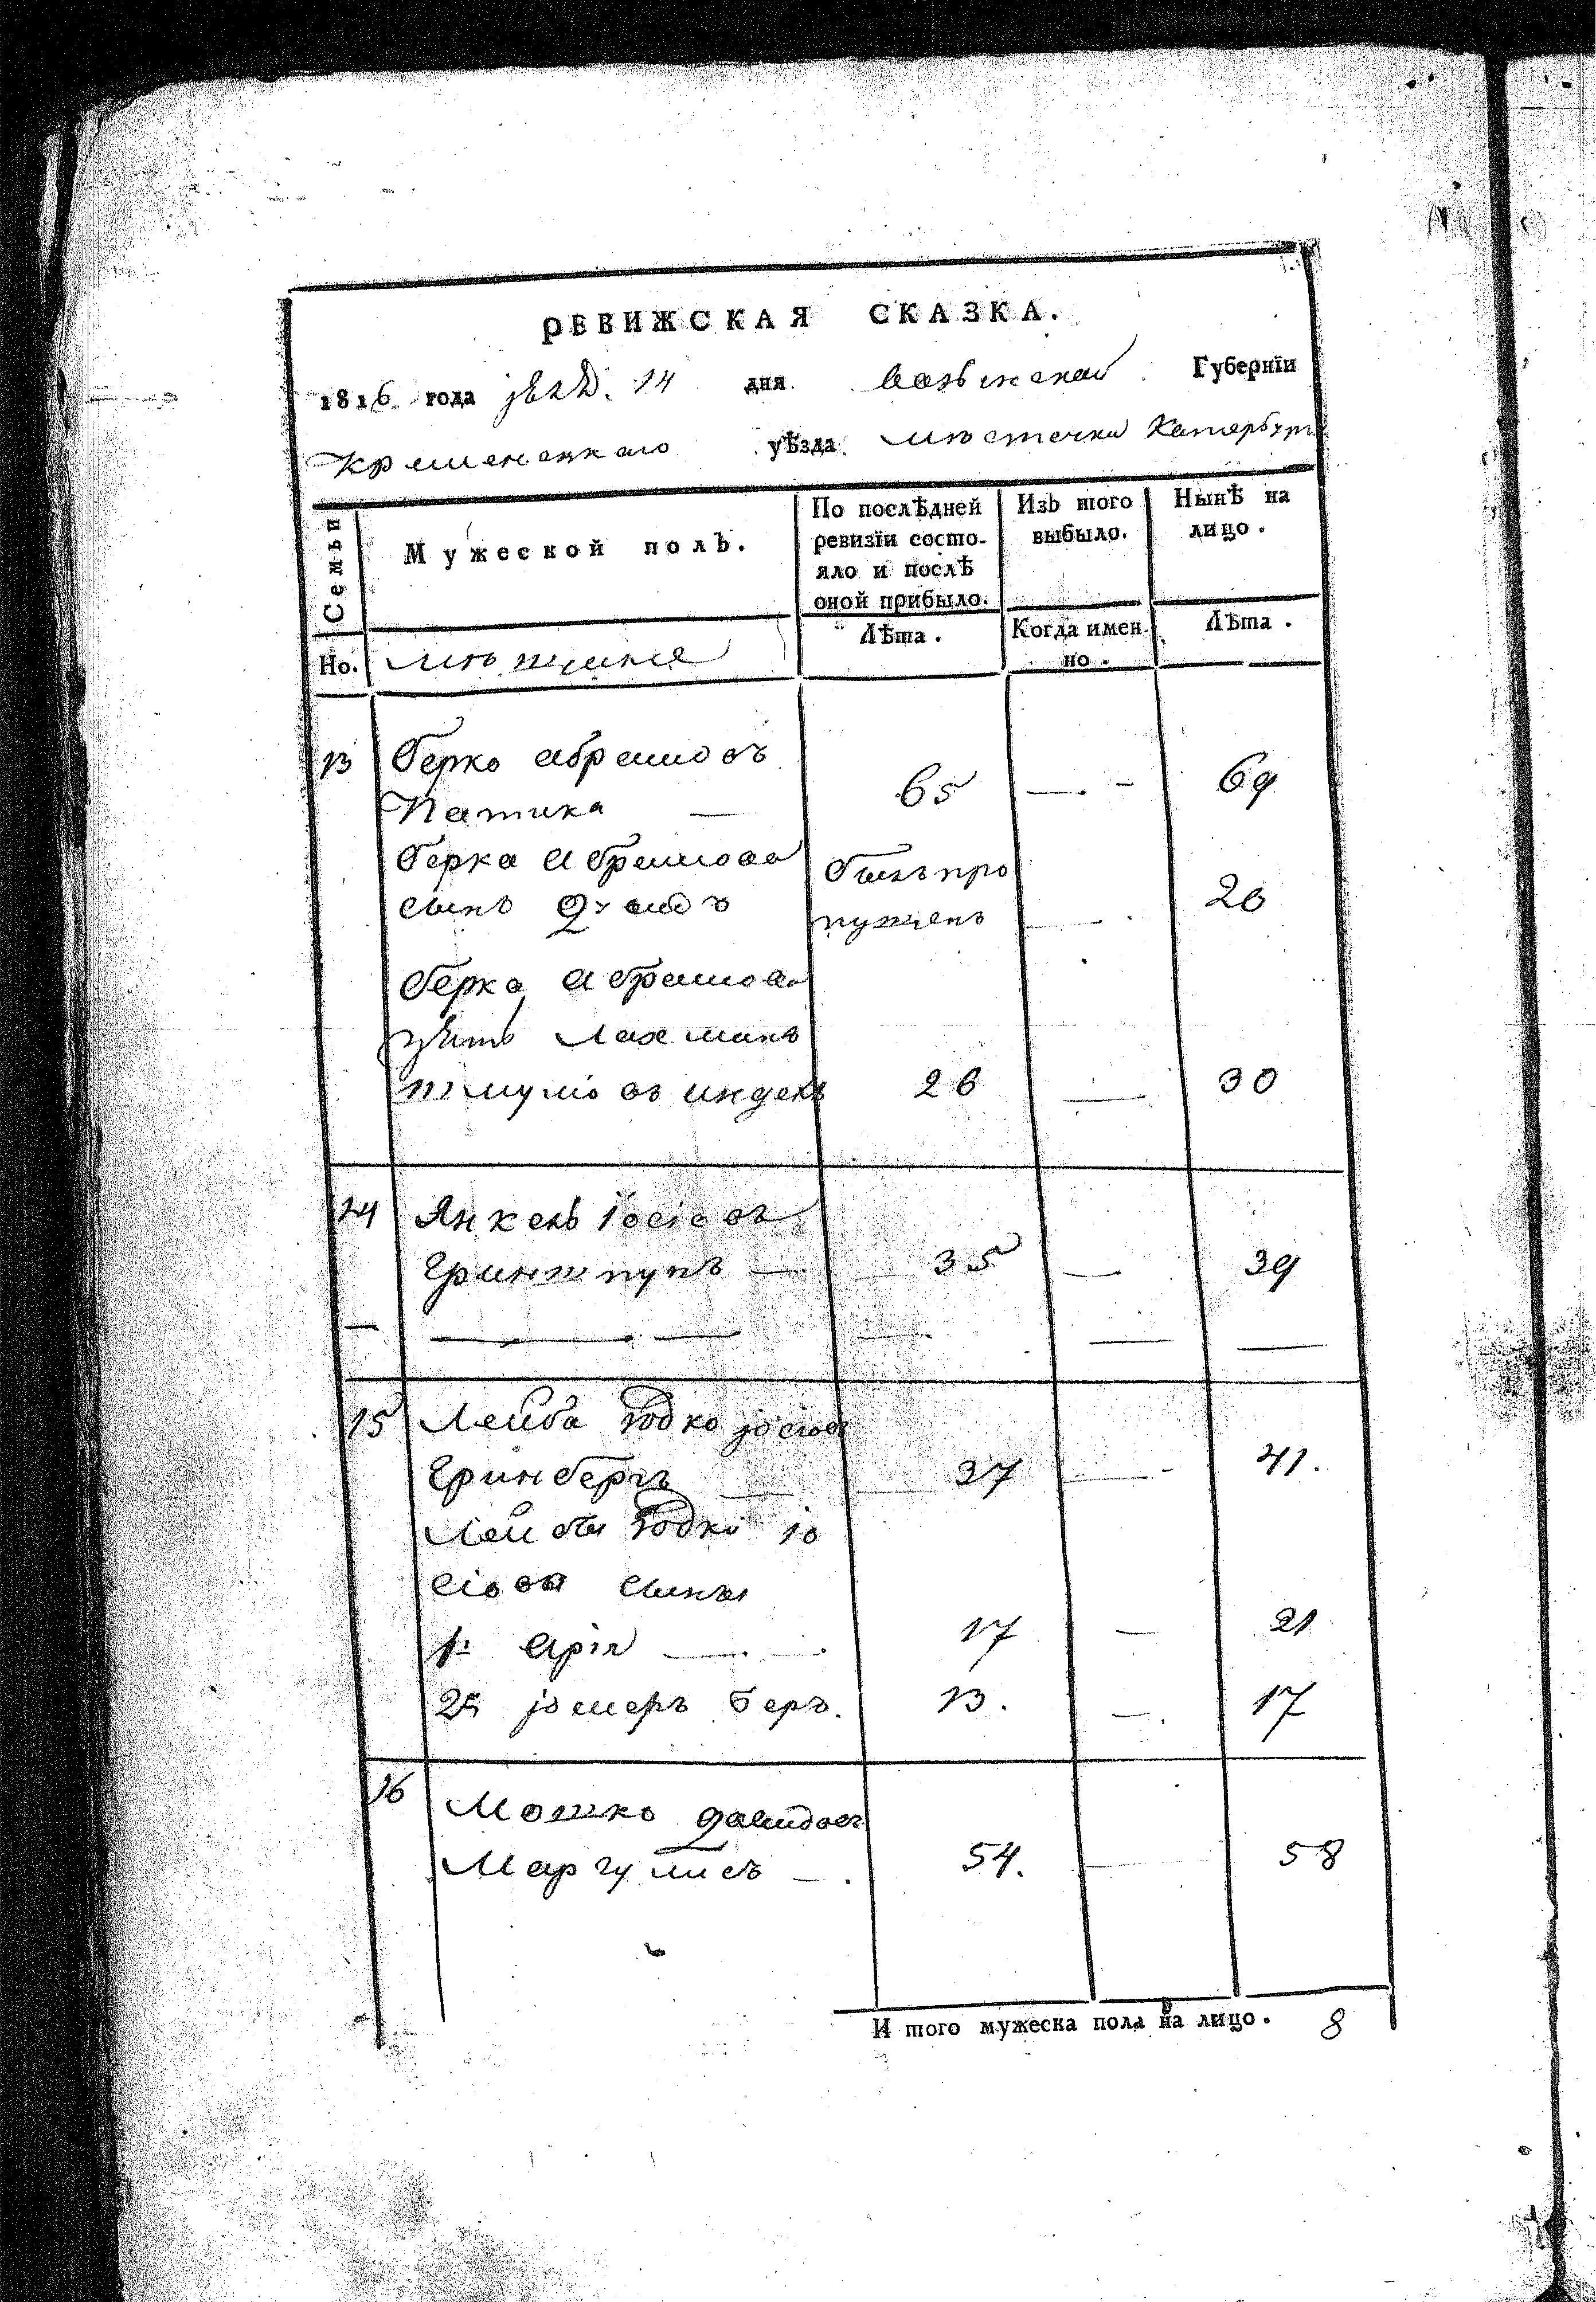 РЕВИЖСКАЯ СКАЗКА.
1816 года 14 дня Волынской Губернїи
Кременецкаго уѣзда мѣстечка Катербург
Семьи
Мужеской полъ.
По послѣдней ревизїи состо-
яло и послѣ
оной прибыло.
Изъ того выбыло.
Нынѣ на лицо.
Но.
Лѣта.
Когда имен-
но.
Лѣта.
13 Берко Абрамовъ
Патика — 65 — - 69
Берка Абрамова былъ про
сынъ пущенъ — 20
Берка Абрамова
зять Лахманъ
26 — 30
14 Янкель Іосіовъ
Гриншпунъ — 35 — 39
15 Лейба Юдко Јосіов
Гринбергъ 37 — 41.
Лейбы Юдки Іо
сіова сыны
1й Арія — 17 — 21
2й Јомеръ Беръ. 13. — 17
16 Мошко Давидовъ
Маргулисъ — 54. — 58
И того мужеска пола на лицо. 8